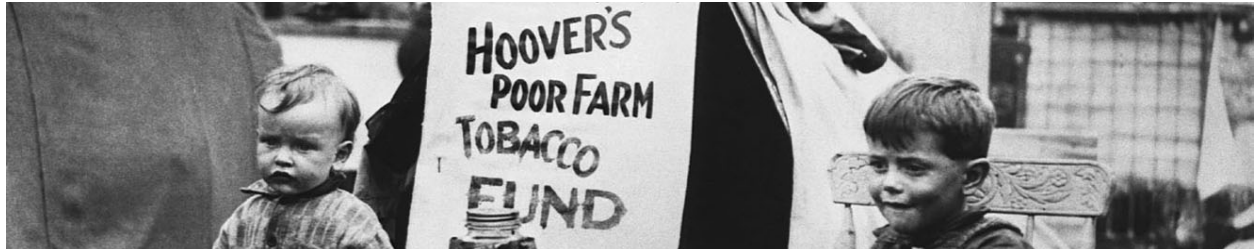 HOOVER'S
POOR FARM
TOBACCO
FUND